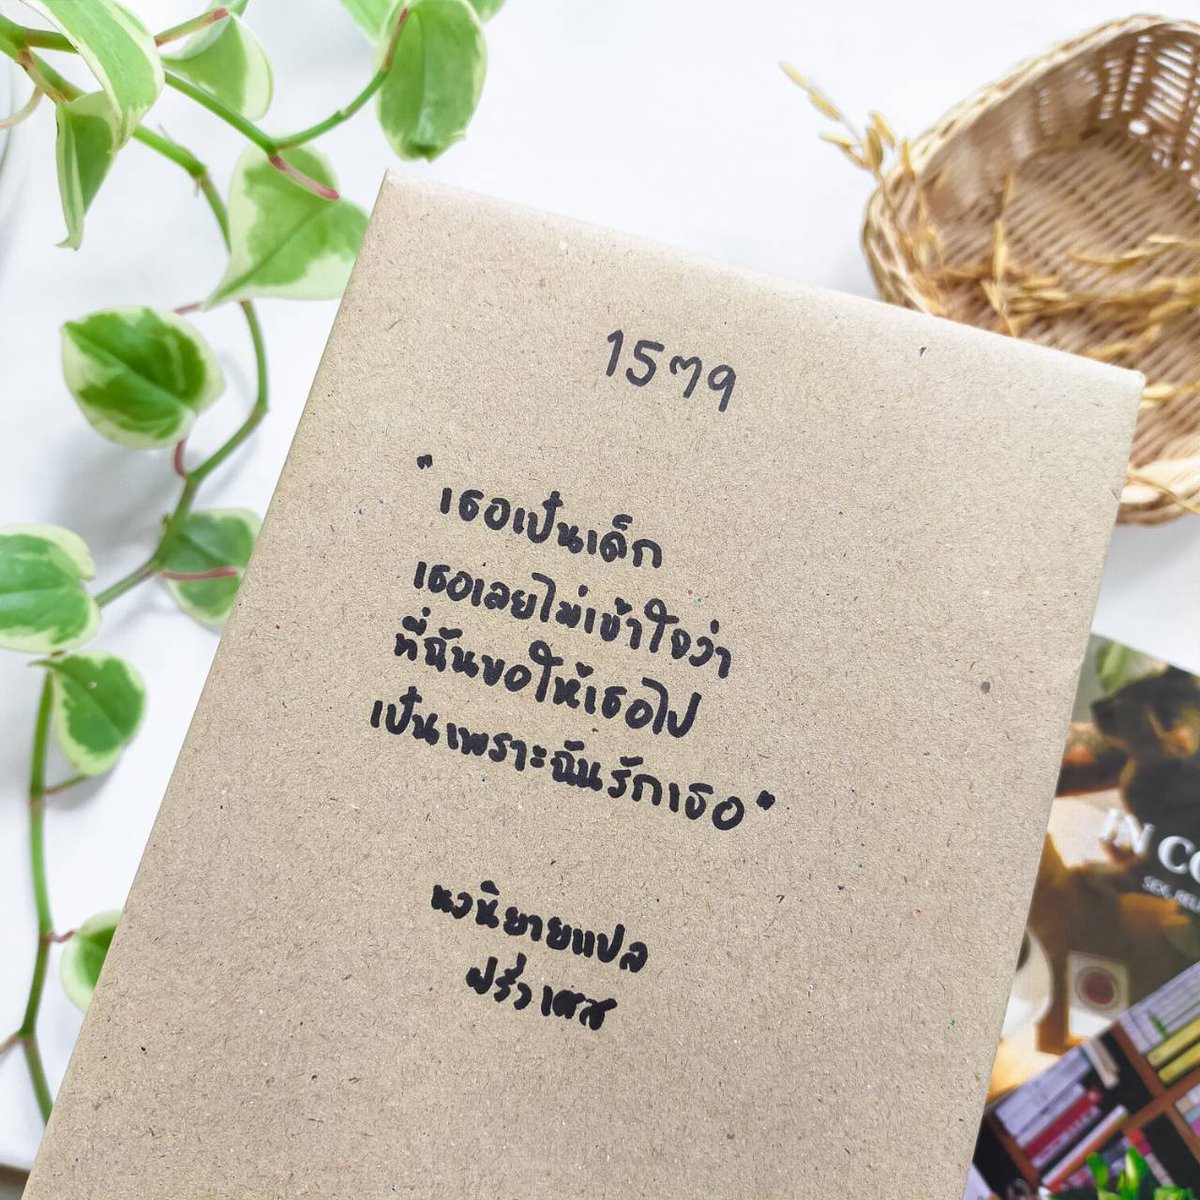 15ฅ9
"เธอเป็นเด็ก
เธอเลยไม่เข้าใจว่า
ที่ฉันขอให้เธอไป
เป็นเพราะฉันรักเธอ"
นวนิยายแปล
ฝรั่งเศส
IN CO